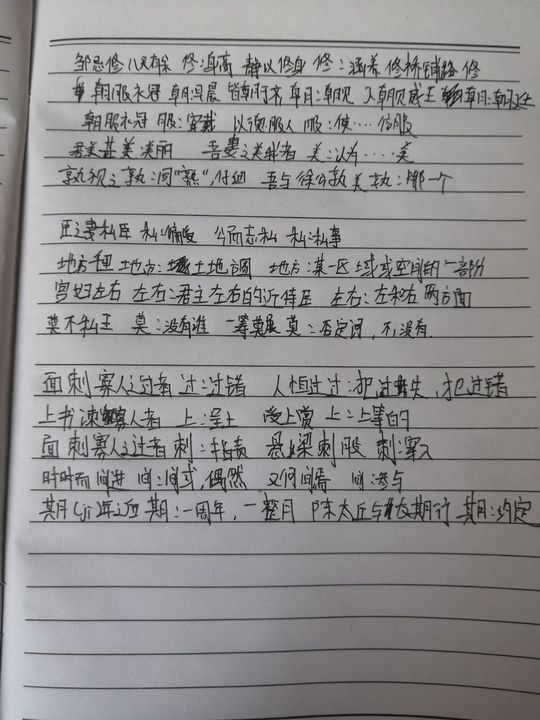 邹忌修八尺有余 修:身高 静以修身 修:涵养 修桥铺路 修
朝服衣冠 朝:早晨 皆朝于齐 朝:朝见 入朝见威王 朝:朝廷
朝服衣冠 服:穿戴 以须服人 服:使……信服
君美甚美 美丽 吾妻之美我者 美:以为……美
孰视之 孰:同"熟",仔细 吾与徐公孰美 孰:哪一个
臣之妻私臣 私:偏爱 公而忘私 私:私事
地方千里 地方:土地方圆 地方:某一区域或空间的一部份
宫妇左右 左右:君主左右的近侍臣 左右:左和右两方面
莫不私王 莫:没有谁 一筹莫展 莫:否定词,不,没有.
面刺寡人之过者 过:过错 人恒过 过:犯过失,犯过错
上书谏寡人者 上:呈上 受上赏 上:上等的
面刺寡人之过者 刺:指责 悬梁刺股 刺:穿入
时时而间进 间:间或,偶然 又何间焉 间:参与
期(jī)年之后 期:一周年,一整月 陈太丘与友期行 期:约定